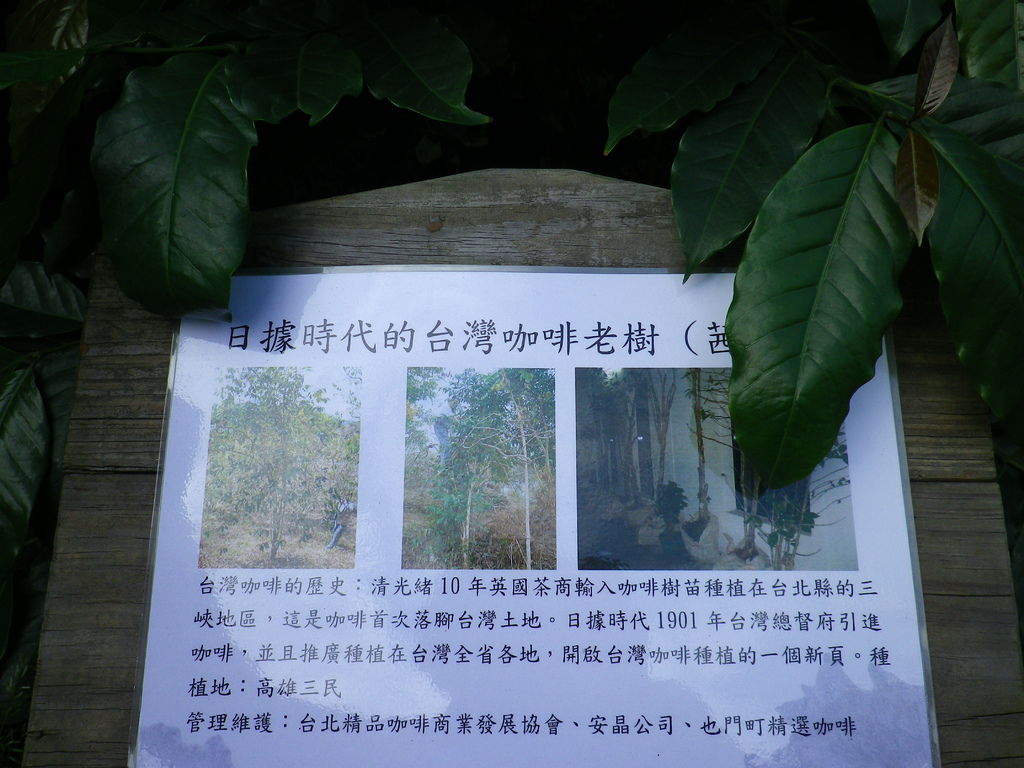 日據時代的台灣咖啡老樹（茜
台灣咖啡的歷史：清光緒10年英國茶商輸入咖啡樹苗種植在台北縣的三
峽地區，這是咖啡首次落腳台灣土地。日據時代1901年台灣總督府引進
咖啡，並且推廣種植在台灣全省各地，開啟台灣咖啡種植的一個新頁。種
植地：高雄三民
管理維護：台北精品咖啡商業發展協會、安晶公司、也門町精選咖啡